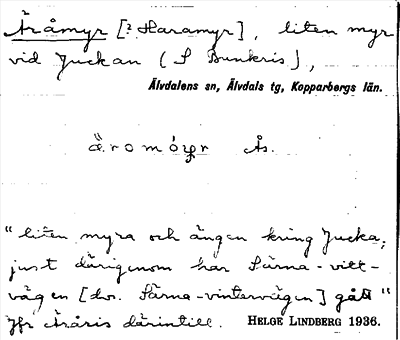 Äråmyr [? Haramyr], liten myr
vid Juckan (S Bunkris),
Älvdalens sn, Älvdals tg, Kopparbergs län.
Ås.
"liten myra och ängen kring Jucka;
just därigenom har Särna-vitt-
vägen [dvs. Särna-vintervägen] gått"
Jfr Äråris därintill. HELGE LINDBERG 1936.